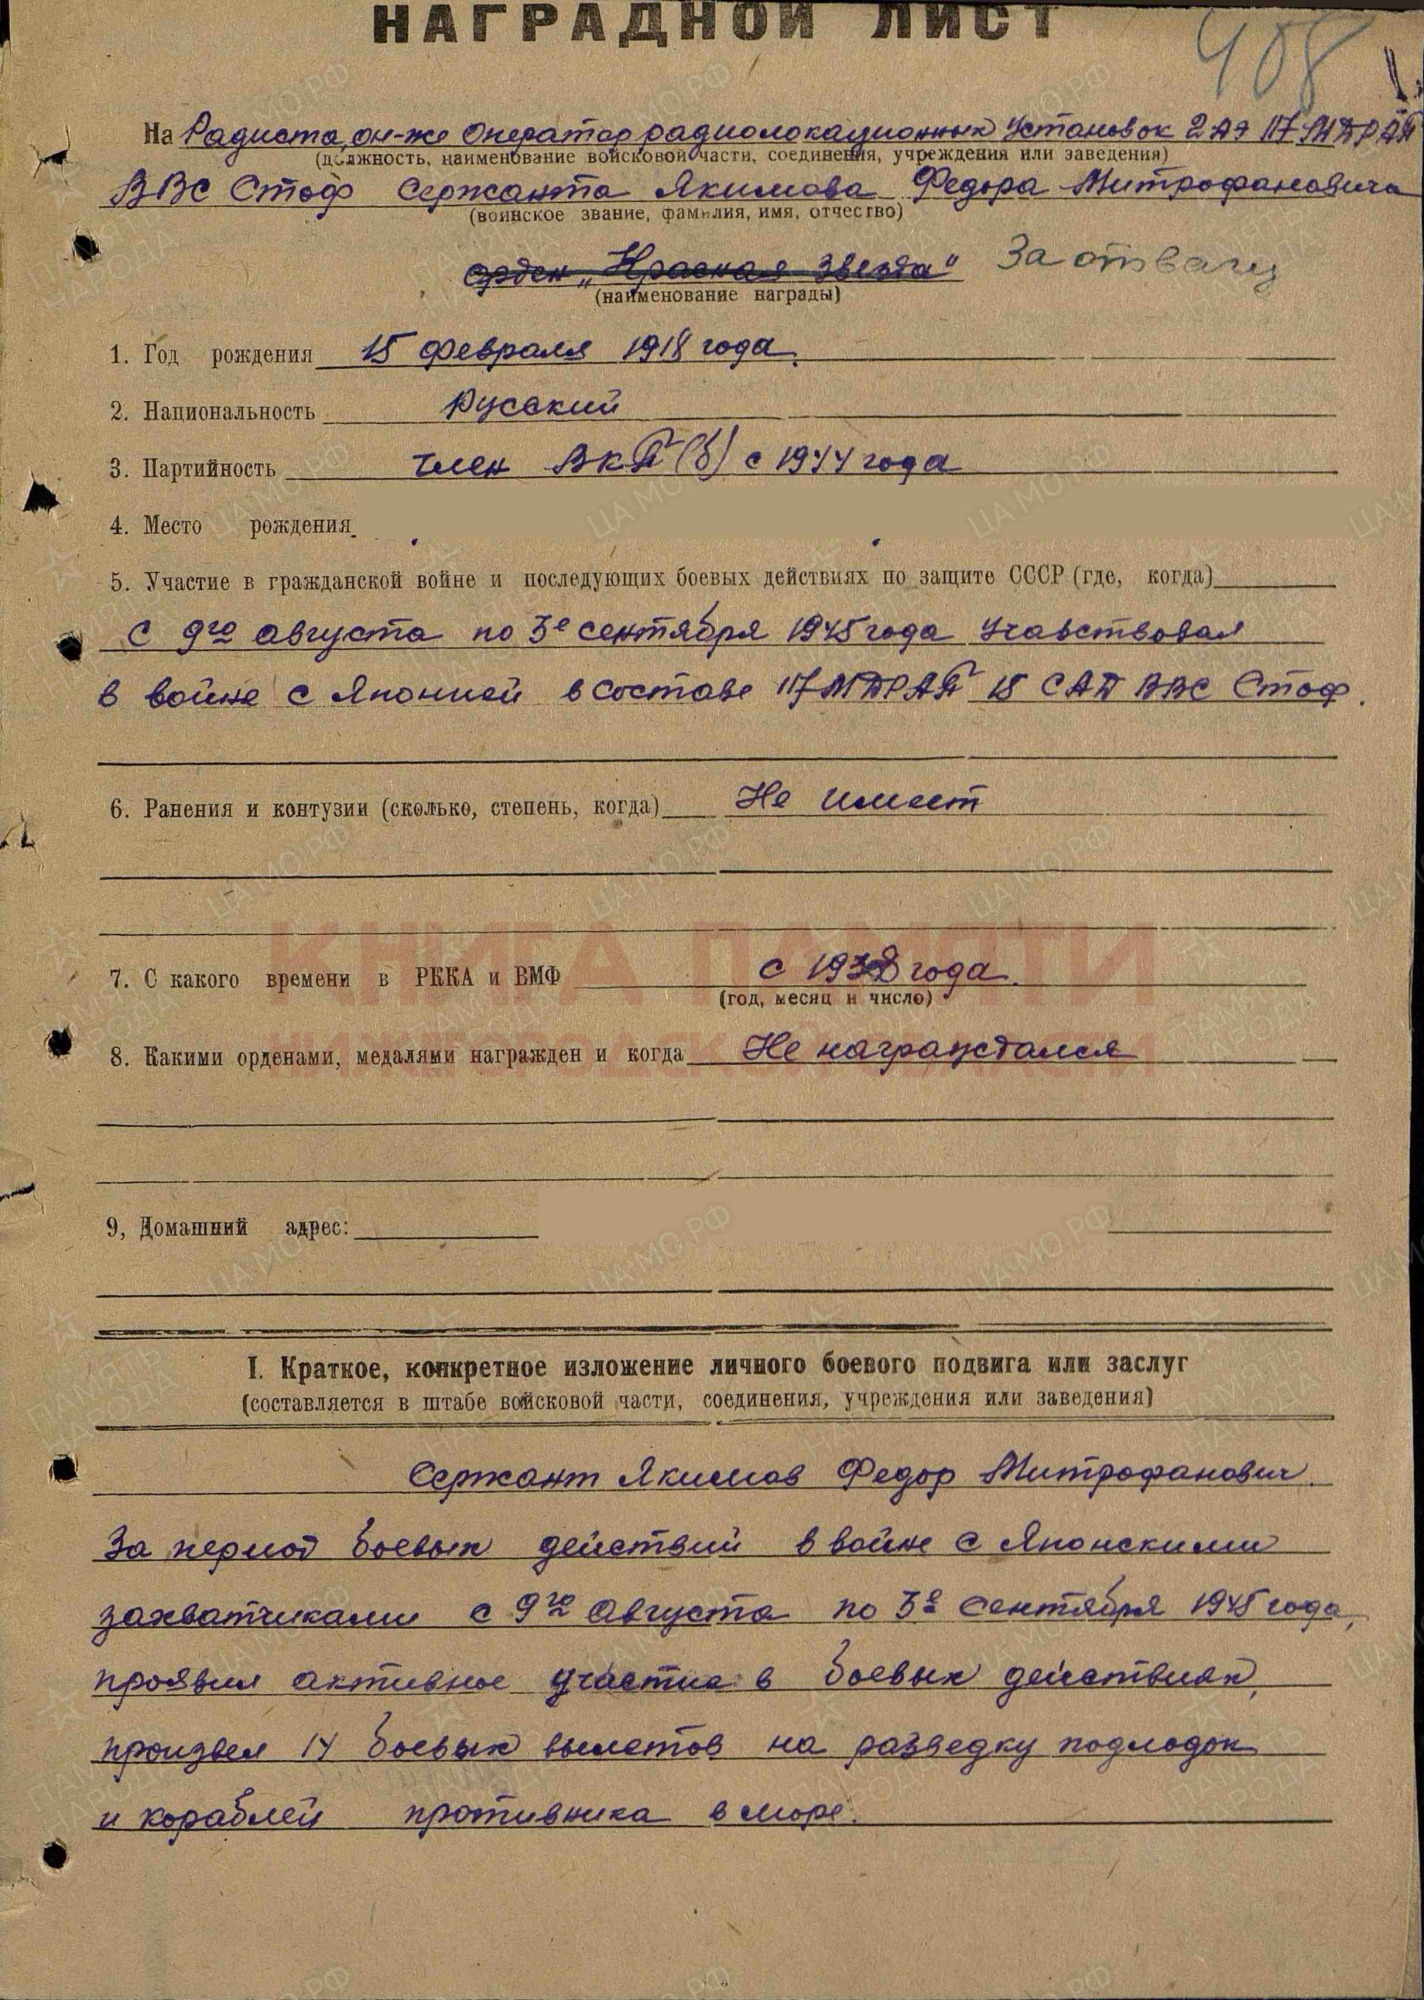 НАГРАДНОЙ ЛИСТ
408
На Радиста, он-же оператор радиолокационных установок 2 АЭ 117 МДРАП
(должность, наименование войсковой части, соединения, учреждения или заведения)
ВВС Стоф Сержанта Якимова Федора Митрофановича
(воинское звание, фамилия, имя, отчество)
орден „Красная Звезда" За отвагу
(наименование награды)
1. Год рождения 15 февраля 1918 года.
2. Национальность Русский
3. Партийность член ВКП(б) с 1944 года
4. Место рождения
5. Участие в гражданской войне и последующих боевых действиях по защите СССР (где, когда)
с 9го августа по 3е сентября 1945 года учавствовал
в войне с Японией в составе 117 МДРАП 15 САД ВВС Стоф.
6. Ранения и контузии (сколько, степень, когда) Не имеет
КНИГА ПАМЯТИ
7. С какого времени в РККА и ВМФ с года.
(год, месяц и число)
НИЖЕГОРОДСКОЙ ОБЛАСТИ
8. Какими орденами, медалями награжден и когда Не награждался
9, Домашний адрес:
I. Краткое, конкретное изложение личного боевого подвига или заслуг
(составляется в штабе войсковой части, соединения, учреждения или заведения)
Сержант Якимов Федор Митрофанович.
За период боевых действий в войне с Японскими
захватчиками с 9го августа по 3е сентября 1945 года,
проявил активное участие в боевых действиях,
произвел 14 боевых вылетов на разведку подлодок
и кораблей противника в море.